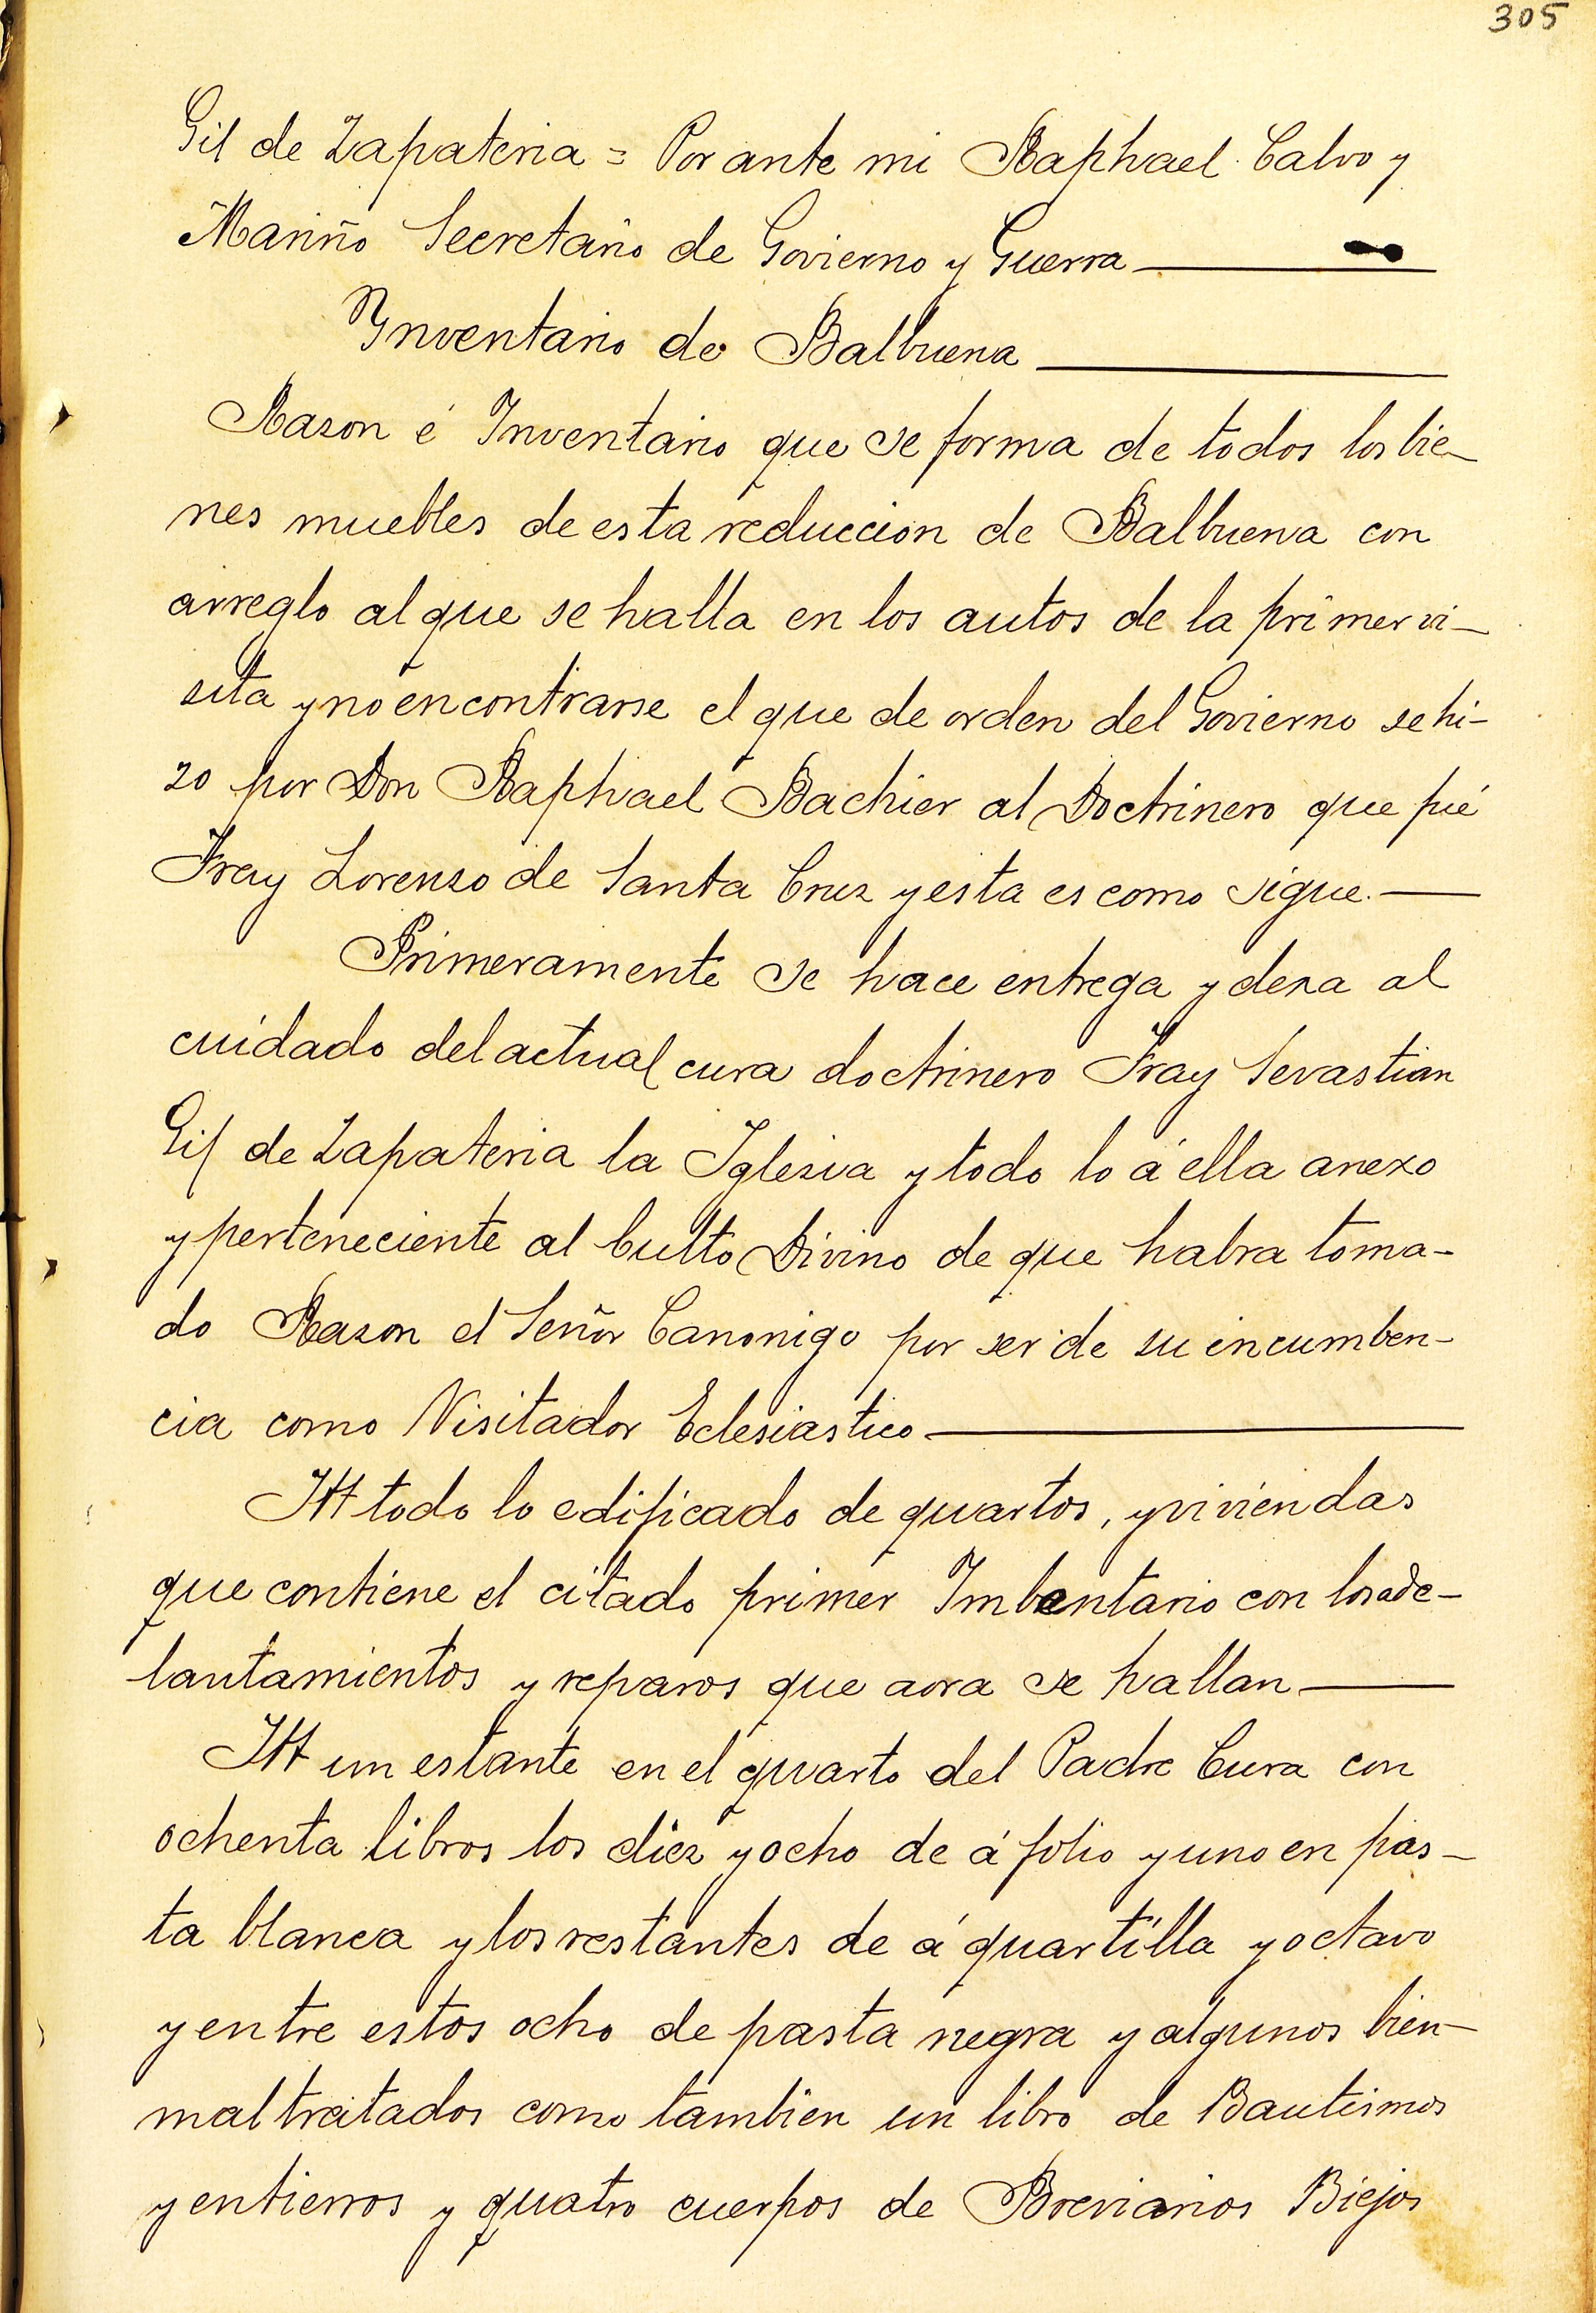 305
Gil de Zapateria = Por ante mi Raphael Calvo y
Mariño Secretario de Govierno y Guerra
Ynventario de Balbuena
Rason é Inventario que se forma de todos los bie-
nes muebles de esta reduccion de Balbuena con
arreglo al que se halla en los autos de la primer vi-
sita y no encontrarse el que de orden del Govierno se hi-
zo por Don Raphael Bachier al Doctrinero que fué
Fray Lorenzo de Santa Cruz y esta es como sigue.
Primeramente se hace entrega y dexa al
cuidado del actual cura doctrinero Fray Sevastian
Gil de Zapateria la Iglesia y todo lo á ella anexo
y perteneciente al Culto Divino de que habra toma-
do Rason el Señor Canonigo por ser de su incumben-
cia como Visitador Eclesiastico
Itt todo lo edificado de quartos, y viviendas
que contiene el citado primer Imbentario con los ade-
lantamientos y reparos que aora se hallan
Itt un estante en el quarto del Padre Cura con
ochenta libros los diez y ocho de á folio y uno en pas-
ta blanca y los restantes de á quartilla y octavo
y entre estos ocho de pasta negra y algunos bien
maltratados como tambien un libro de Bautismos
y entierros y quatro cuerpos de Breviarios Biejos